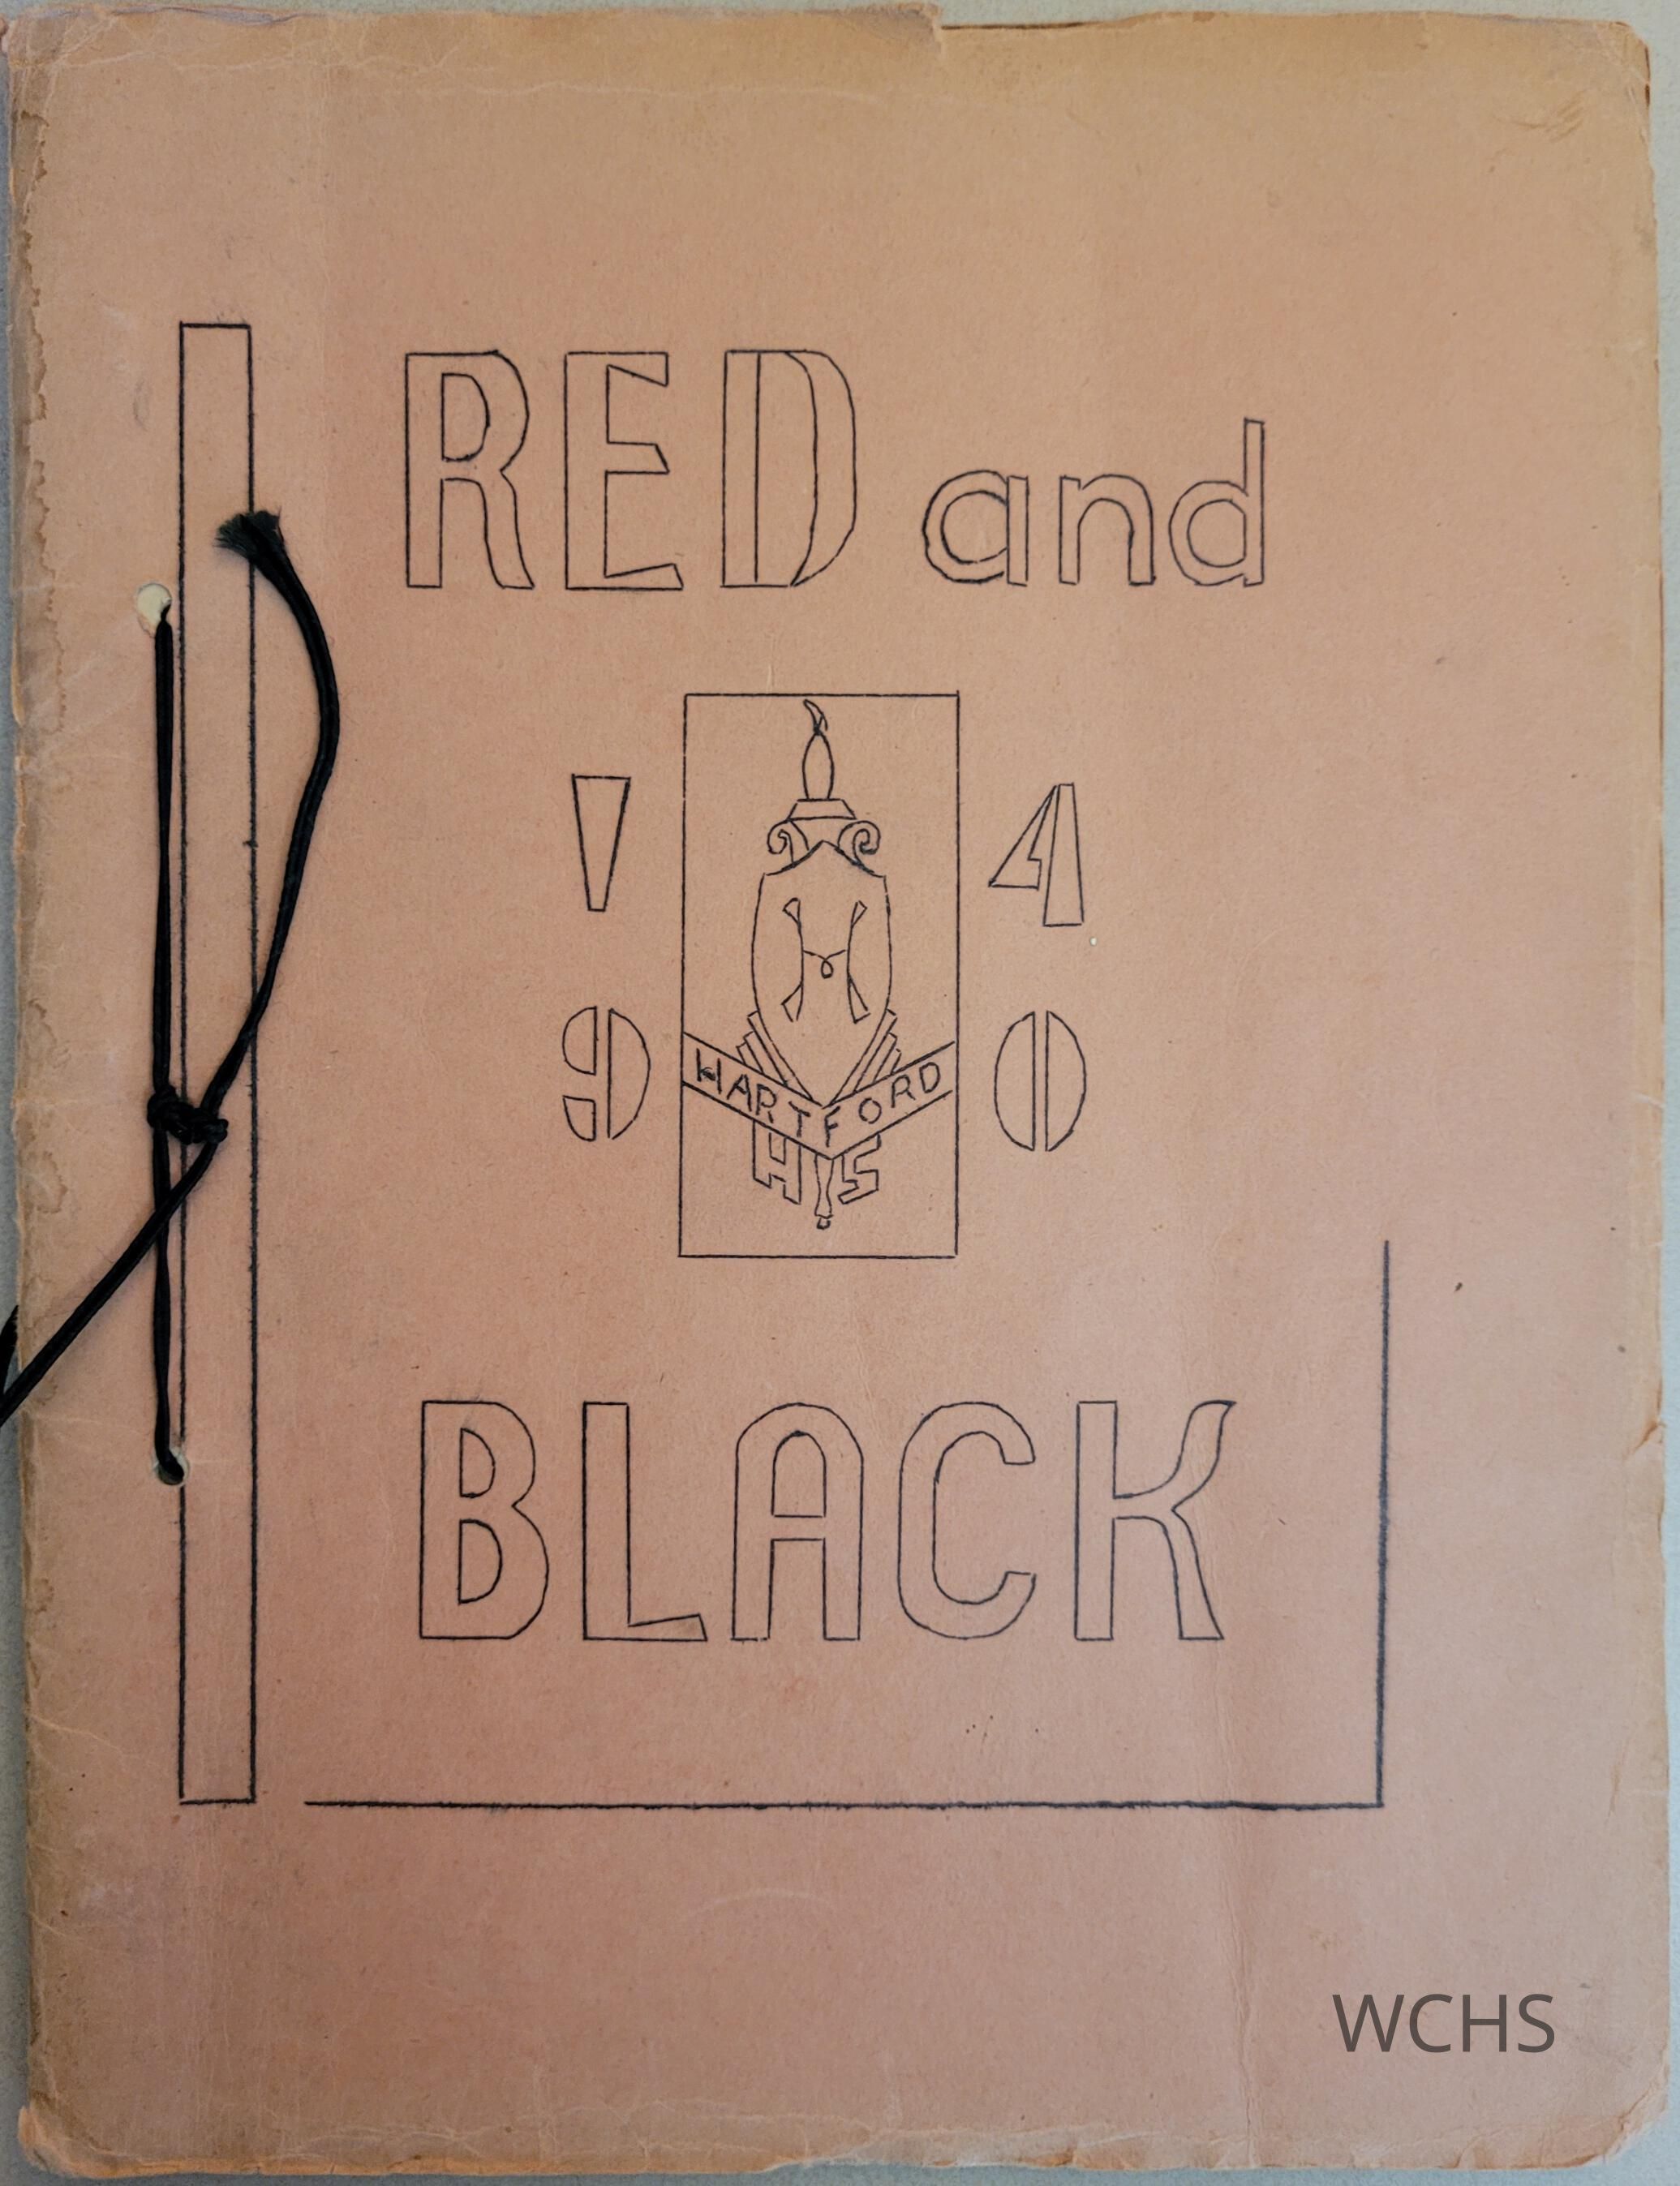 RED and
1 4
H
9 0
HARTFORD
HS
BLACK
WCHS